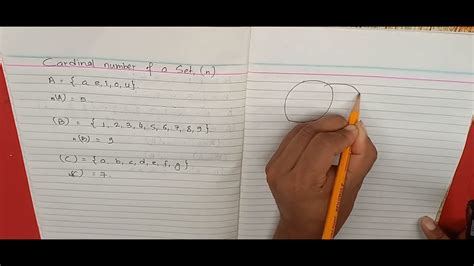 Cardinal number of a Set, (n)
A = { a, e, i, o, u }.
n(A) = 5
(B) = { 1, 2, 3, 4, 5, 6, 7, 8, 9 }.
n(B) = 9
(C) = { a, b, c, d, e, f, g }
) = 7.